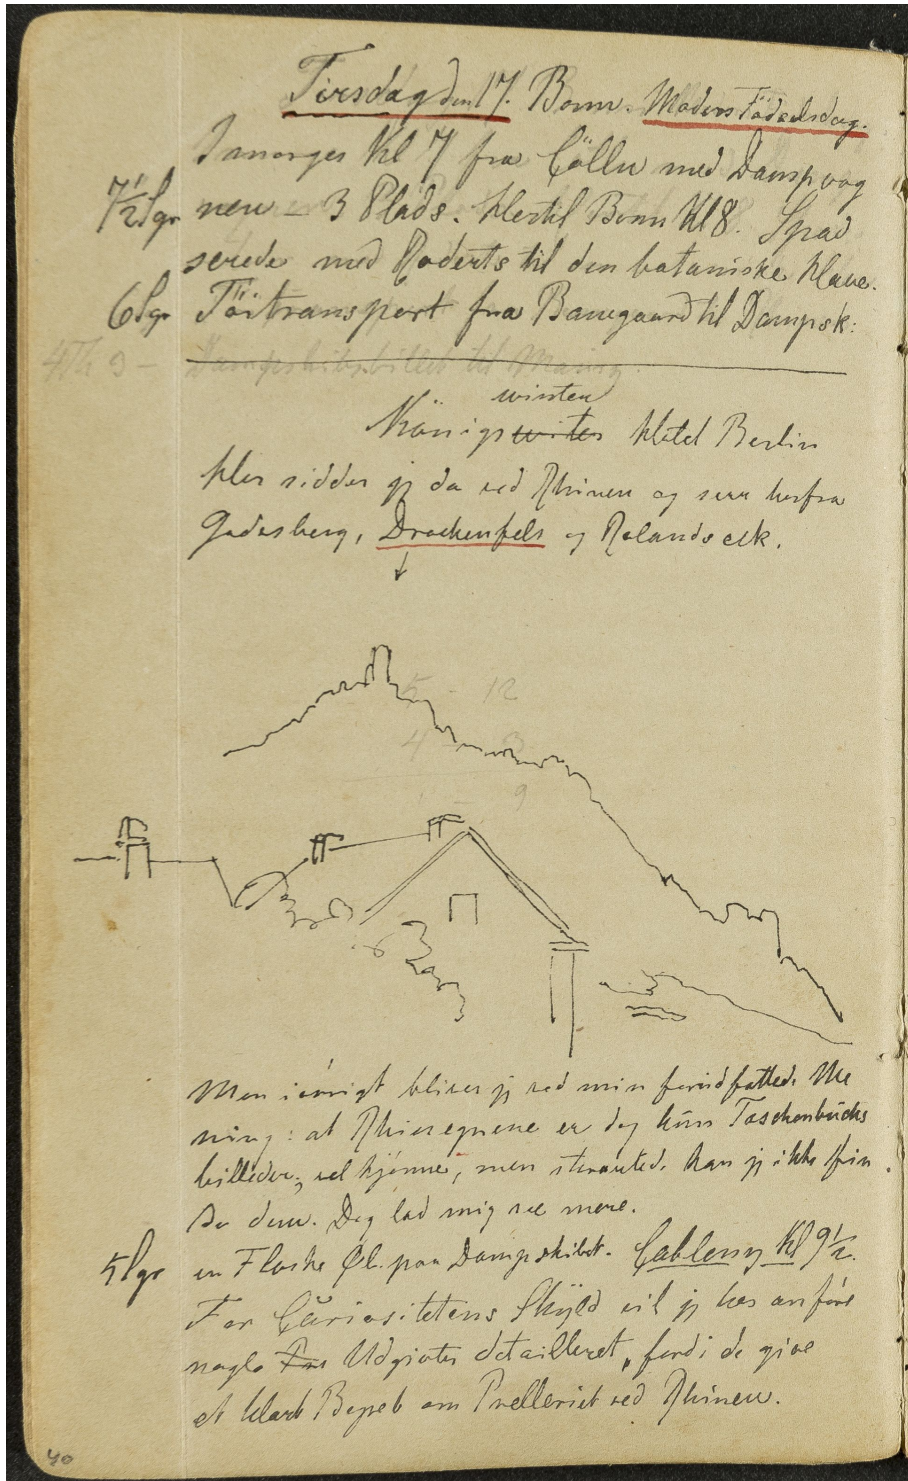 Tirsdag den 17. Bonn. Moders Födselsdag.
Imorges Kl 7 fra Cölln med Dampvog
7½ Sgr nen – 3 Plads. Hertil Bonn Kl 8. Spad
serede med Roderts til den botaniske Have.
6 Sgr Töitransport fra Banegaard til Dampsk:
4Th 9 – Dampskibsbillet til Mainz.
winter
Königswiter Hotel Berlin
Her sidder jg da ved Rhinen og seer herfra
Godesberg, Drachenfels og Rolandseck.
5 – 12
4 – 3
9
Men iövrigt bliver jg ved min forudfattede Me
ning: at Rhinegnene er dog kun Taschenbuchs
billeder; vel kjönne, men storartede kan jg ikke fin
de dem. Dog lad mig see mere.
5 Sgr en Flaske Øl paa Dampskibet. Coblenz Kl 9½.
For Curiositetens Skyld vil jg her anföre
nogle Udgivter detailleret, fordi de give
et klart Begreb om Prelleriet ved Rhinen.
40